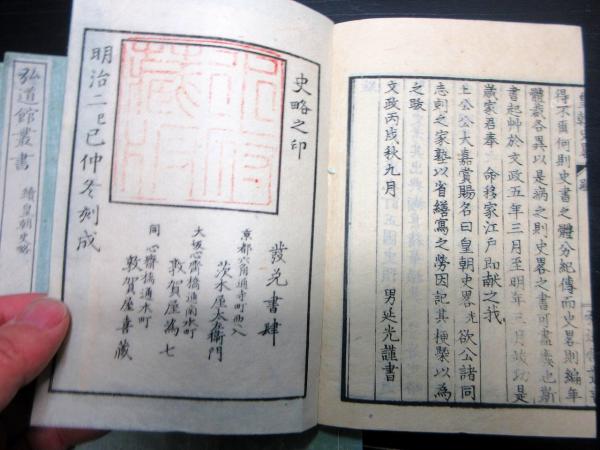 得不有何則史書之體分紀傳而史畧則編年
體裁各異以是病之則史畧之書可盡廢也斯
書起艸於文政五年三月至明年三月竣功是
歲家君奉 命移家江戸即獻之我
上公公大嘉賞賜名曰皇朝史畧尤欲公諸同
志刻之家塾以省繕寫之勞因記其梗槩以為
之跋
文政丙戌秋九月 男延光謹書
史略之印
明治二己巳仲冬刻成
發兌書肆
京都六角通寺町西入
茨木屋太左衛門
大坂心齋橋通南水町
敦賀屋為七
同心齋橋通本町
敦賀屋喜藏
弘道館叢書
續皇朝史略